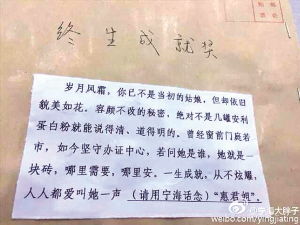 终生成就奖
岁月风霜，你已不是当初的姑娘，但却依旧
貌美如花。容颜不改的秘密，绝对不是几罐安利
蛋白粉就能说得清、道得明的。曾经窗前门庭若
市，如今坚守办证中心，若问她是谁，她就是一
块砖，哪里需要，哪里安。一生成就，从不炫耀，
人人都爱叫她一声（请用宁海话念）“惠君姐”。
weibo.com/yingjiating